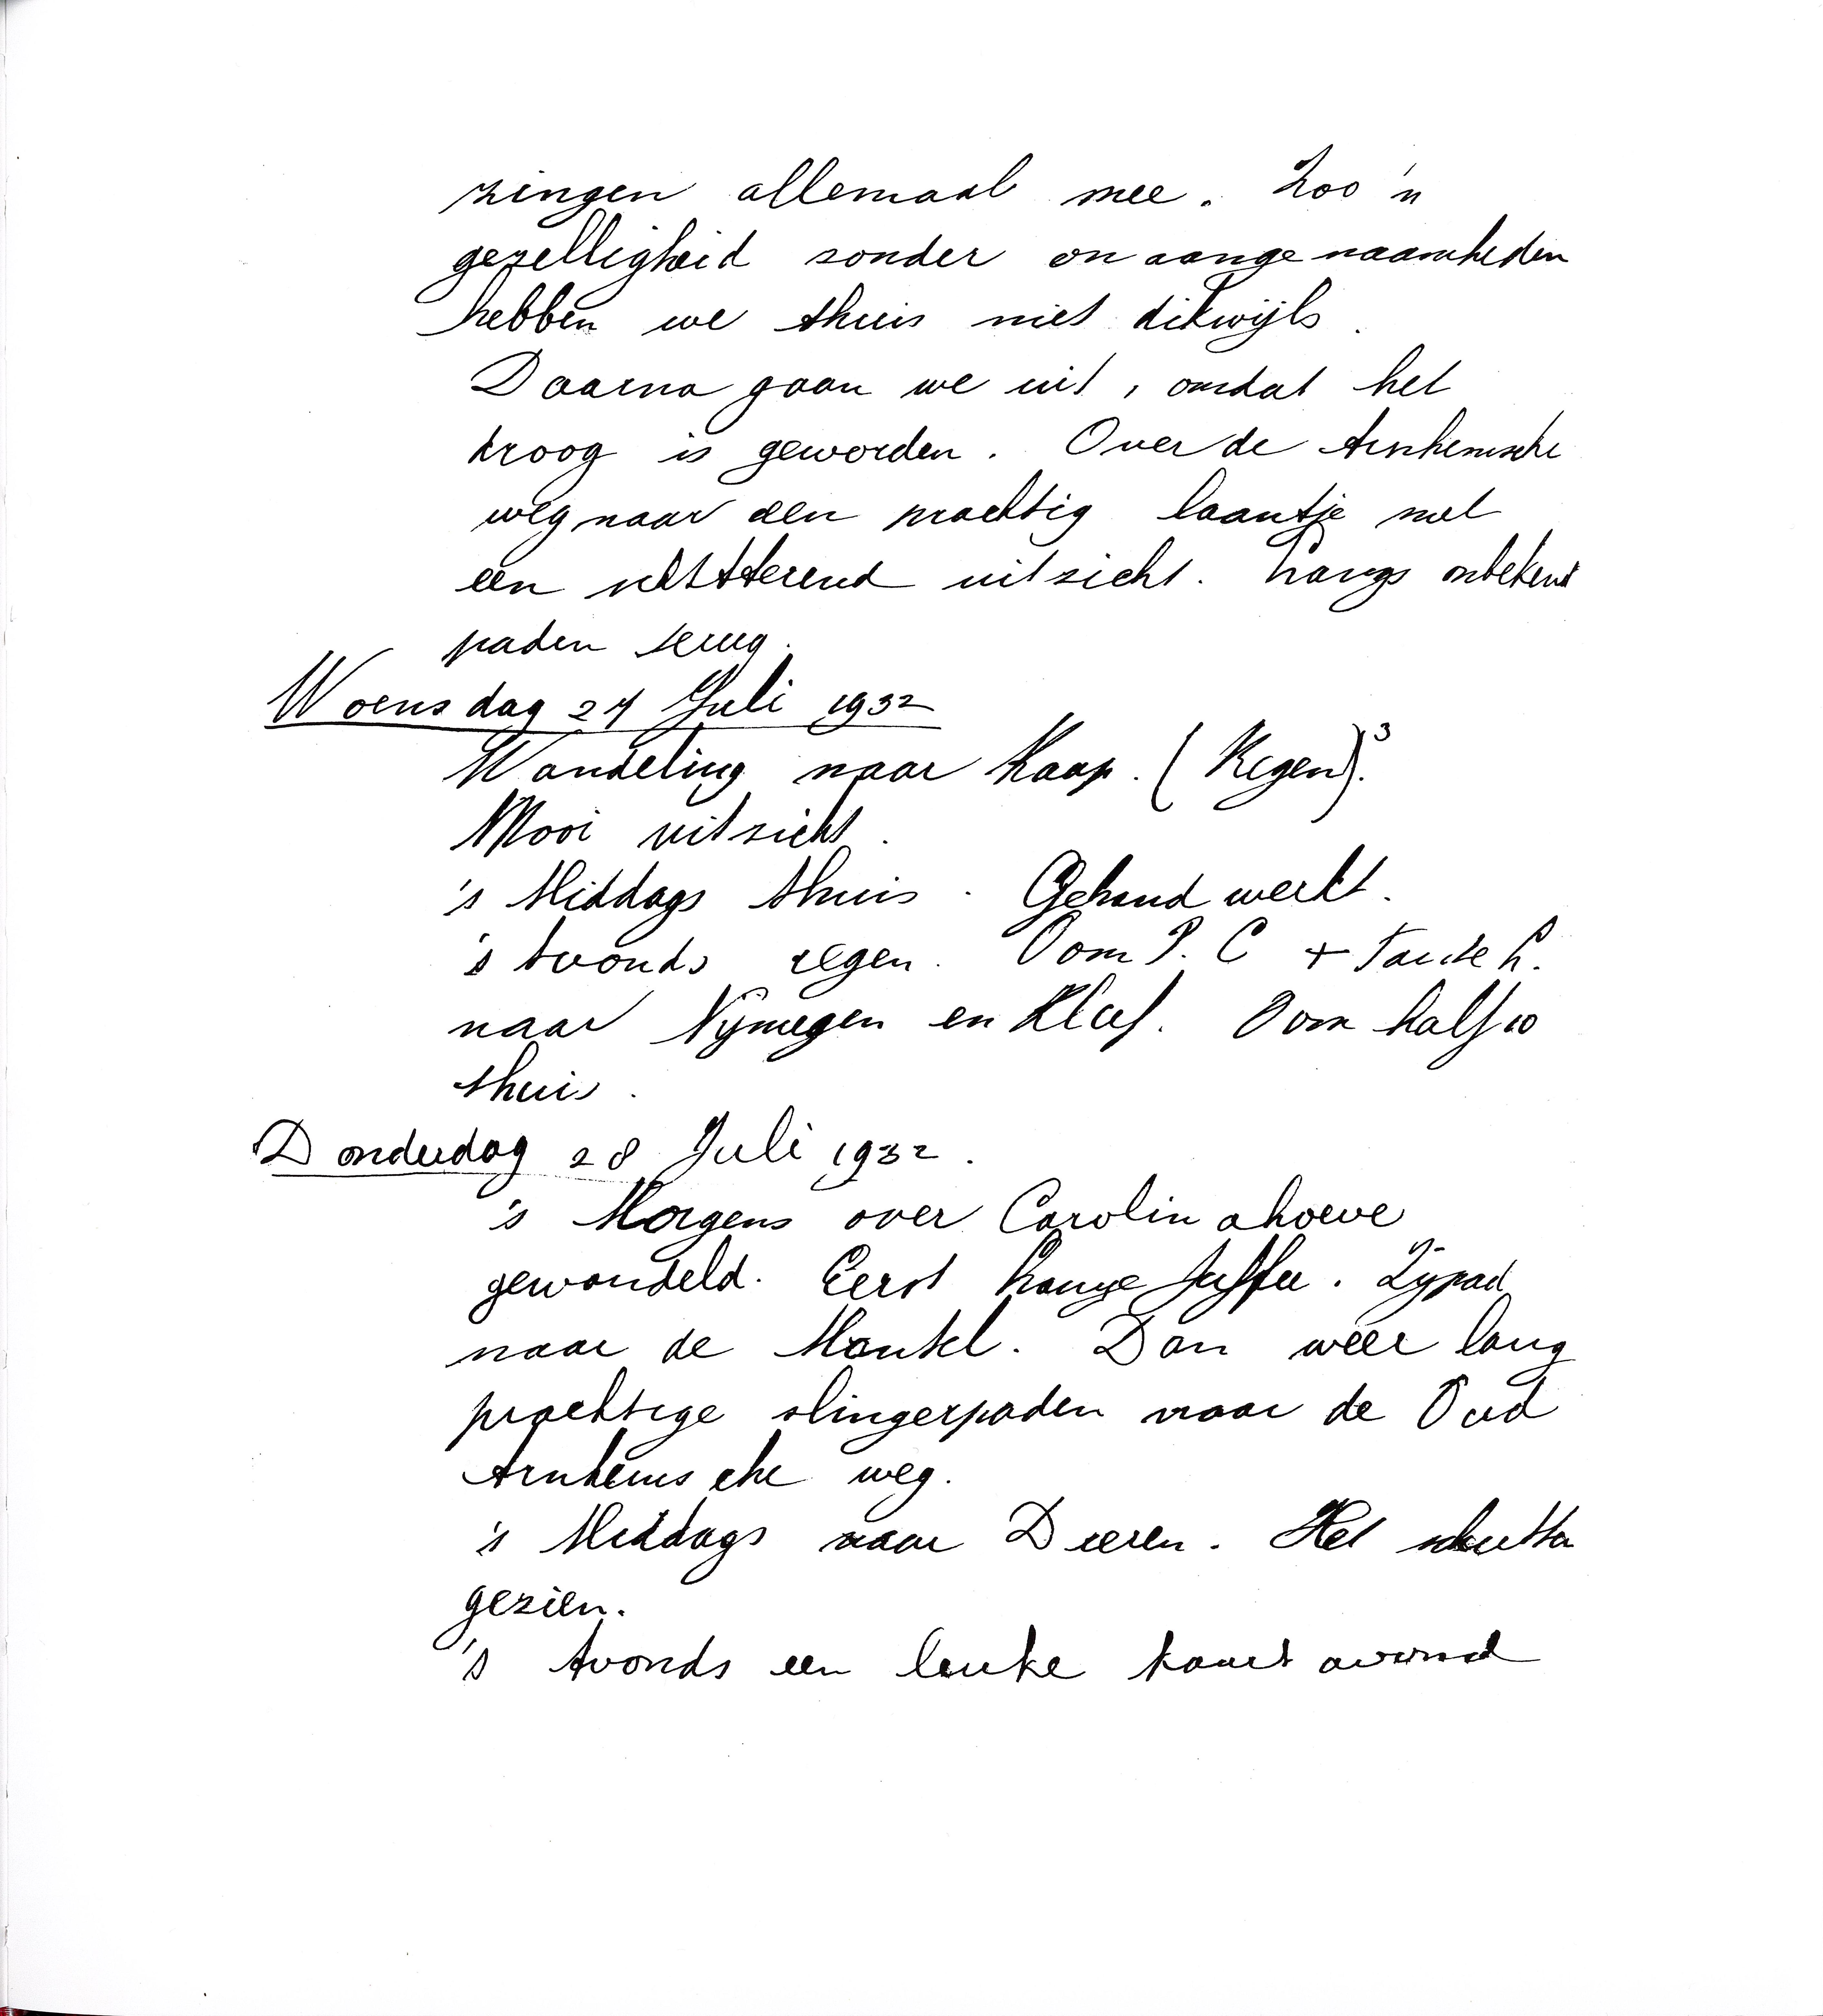 zingen allemaal mee. Zoo 'n
gezelligheid zonder onaangenaamheden
hebben we thuis niet dikwijls.
Daarna gaan we uit, omdat het
droog is geworden. Over de Arnhemsche
weg naar een prachtig laantje met
een schitterend uitzicht. Langs onbekend
paden terug.
Woensdag 27 Juli 1932
Wandeling naar Kaap. (Regen)³.
Mooi uitzicht.
's Middags thuis. Gehandwerkt.
's Avonds regen. Oom P. C + Tante L.
naar Nijmegen en Kleef. Om half 10
thuis.
Donderdag 28 Juli 1932.
's Morgens over Carolinahoeve
gewandeld. Eerst Lange Juffer. Zijpad
naar de Henkel. Dan weer lang
prachtige slingerpaden naar de Oud
Arnhemsche weg.
's Middags naar Dieren. Het
gezien.
's Avonds een leuke kaart avond